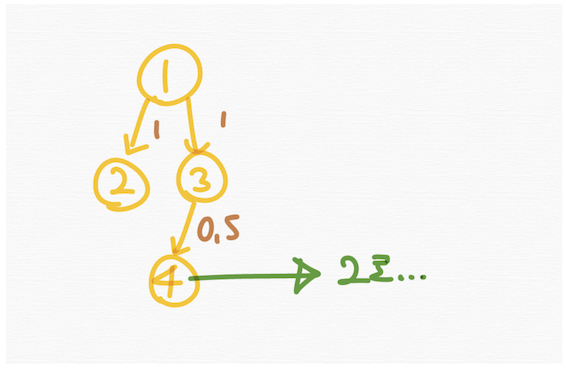 1
1 1
2 3
0,5
4 2Σ...